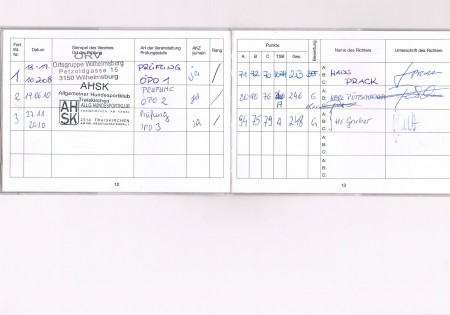 Fort. lfd. Nr.
Datum
Stempel des Vereines
Ort der Prüfung
Art der Veranstaltung
Prüfungsstufe
AKZ
ja/nein
Rang
1
18.-19.
10.2008
ÖRV
Ortsgruppe Wilhelmsburg
Petzoldgasse 15
3150 Wilhelmsburg
PRÜFUNG
ÖPO 1
ja
/
2
19.06.10
AHSK
Allgemeiner Hundesportklub
Traiskirchen
PRÜFUNG
ÖPO 2
ja
/
3
27.11
2010
AH
SK
ALLG. HUNDESPORTKLUB
TRAISKIRCHEN AM KANAL
2514 TRAISKIRCHEN
Prüfung
IPO 3
ja
/
12
Punkte
A
B
C
TSB
Ges.
Bewertung
Name des Richters
Unterschrift des Richters
71
72
70
213
A:
B:
C:
HANS
PRACK
90
76
246
G
A:
B:
C:
KARL
94
75
79
A
248
G
A:
B:
C:
Gruber
A:
B:
C:
13